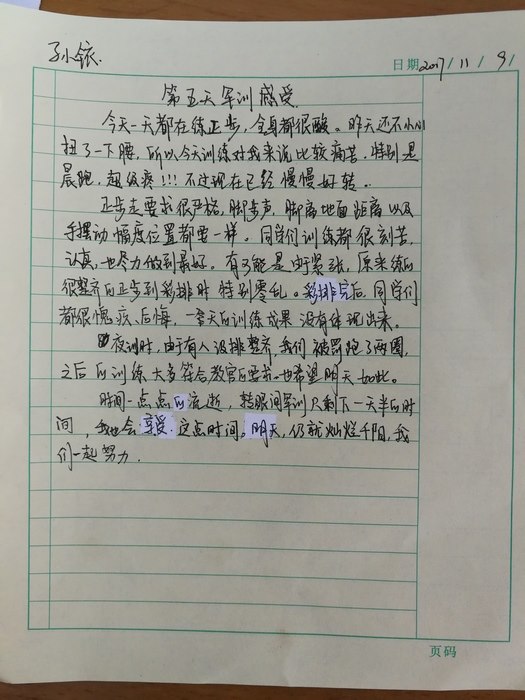 孙小铱.
日期 2017/11/9/
第五天军训感受.
今天一天都在练正步,全身都很酸。昨天还不小心
扭了一下腰,所以今天训练对我来说比较痛苦,特别是
晨跑,超级疼!!!不过现在已经慢慢好转。
正步走要求很严格,脚步声,脚离地面距离以及
手摆动幅度位置都要一样。同学们训练都很刻苦,
认真,也尽力做到最好。有可能是由于紧张,原来练的
很整齐的正步到彩排时特别零乱。彩排完后同学们
都很愧疚、后悔,一个天的训练成果没有体现出来。
夜训时,由于有人没排整齐,我们被罚跑了两圈,
之后的训练大多符合教官的要求。也希望明天如此。
时间一点点的流逝,转眼间军训只剩下一天半的时
间,我也会享受这点时间。明天,仍就灿烂千阳,我
们一起努力.
页码